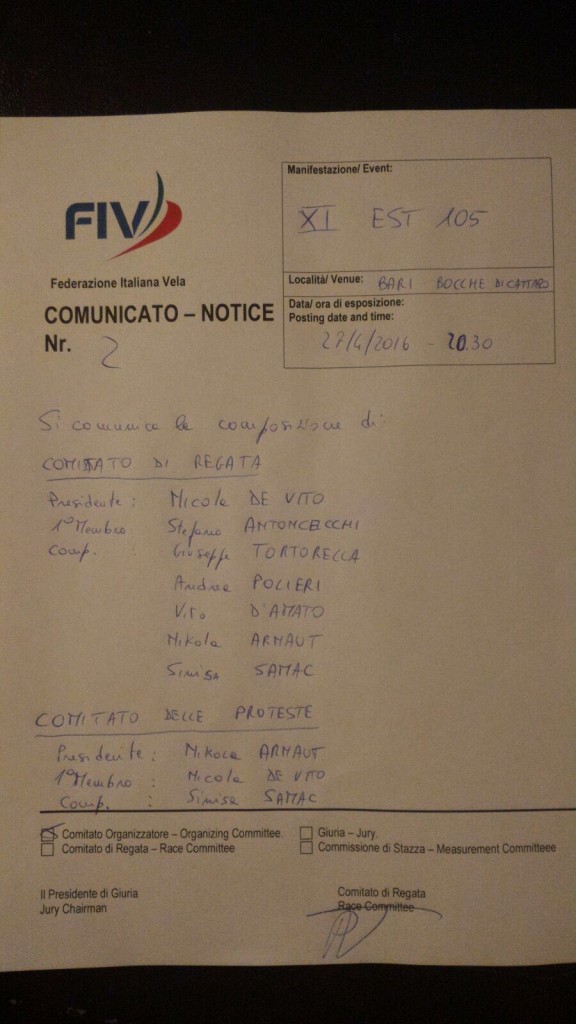 FIV
Federazione Italiana Vela
COMUNICATO – NOTICE
Nr. 2
Manifestazione/ Event:
XI EST 105
Località/ Venue: BARI BOCCHE DI CATTARO
Data/ ora di esposizione:
Posting date and time:
27/4/2016 - 20.30
Si comunica la composizione di:
COMITATO DI REGATA
Presidente: Nicola DE VITO
1° Membro Stefano ANTONCECCHI
Comp. : Giuseppe TORTORELLA
Andrea POLIERI
Vito D'AMATO
Nikola ARNAUT
Sinisa SAMAC
COMITATO DELLE PROTESTE
Presidente: Nikola ARNAUT
1° Membro : Nicola DE VITO
Comp. : Sinisa SAMAC
Comitato Organizzatore – Organizing Committee.
Giuria – Jury.
Comitato di Regata – Race Committee
Commissione di Stazza – Measurement Committeee
Il Presidente di Giuria
Jury Chairman
Comitato di Regata
Race Committee